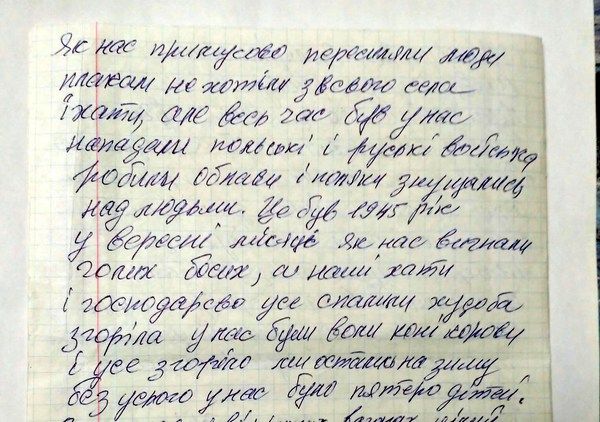 Як нас примусово переселяли люди
плакали не хотіли з всвого села
їхати, але весь час був у нас
нападали польські і руські війська
робили облави і поляки знущались
над людьми. Це був 1945 рік
у вересні місяці як нас вигнали
голих босих, а наші хати
і господарсво усе спалили худоба
згоріла у нас були воли коні корови
і усе згоріло ми остались на зиму
без усього у нас було пятеро дітей.